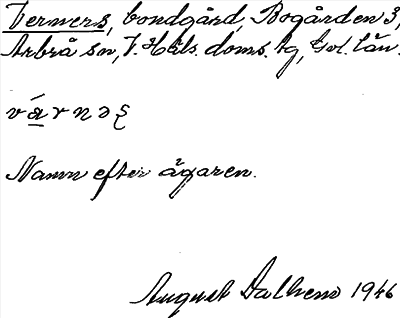 Verners, bondgård, Bogården 3,
Arbrå sn, V. Häls. doms. tg, Gvl. län.
vá̲rnəʂ
Namn efter ägaren.
August Dalhem 1946